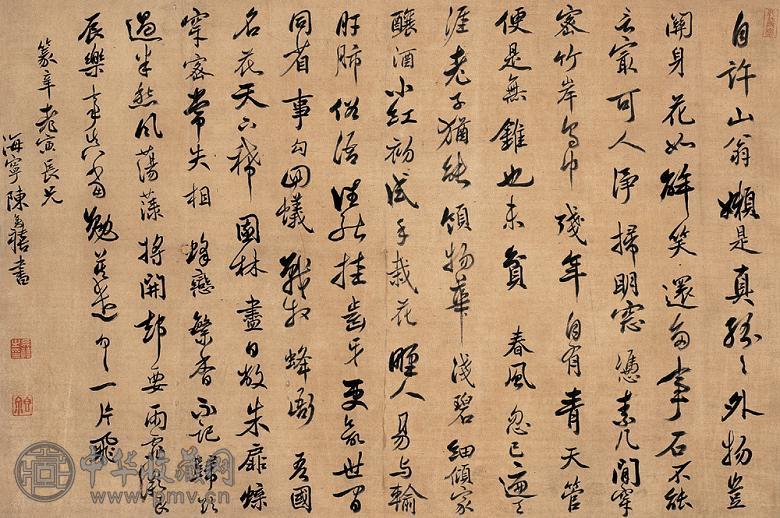 自許山翁嬾是真紛紛外物豈
關身花如解笑還多事石不能
言最可人淨掃明窓憑素几閒穿
密竹岸烏巾殘年自有青天管
便是無錐也未貧 春風忽已遍天
涯老子猶能領物華淺碧細傾家
釀酒小紅初試手栽花野人易與輸
肝肺俗語誰能挂齒牙更欲世間
同省事勾回蟻戰放蜂衙 吾國
名花天下稀園林盡日敞朱扉蝶
穿密常失相蜂戀繁香不記歸欲
過半愁風蕩漾將開却要雨霏微良
辰樂事真當勉莫遣匆匆一片飛
篆辛老寅長兄
海寧陳奕禧書
中华收藏网
www.pmv.cn